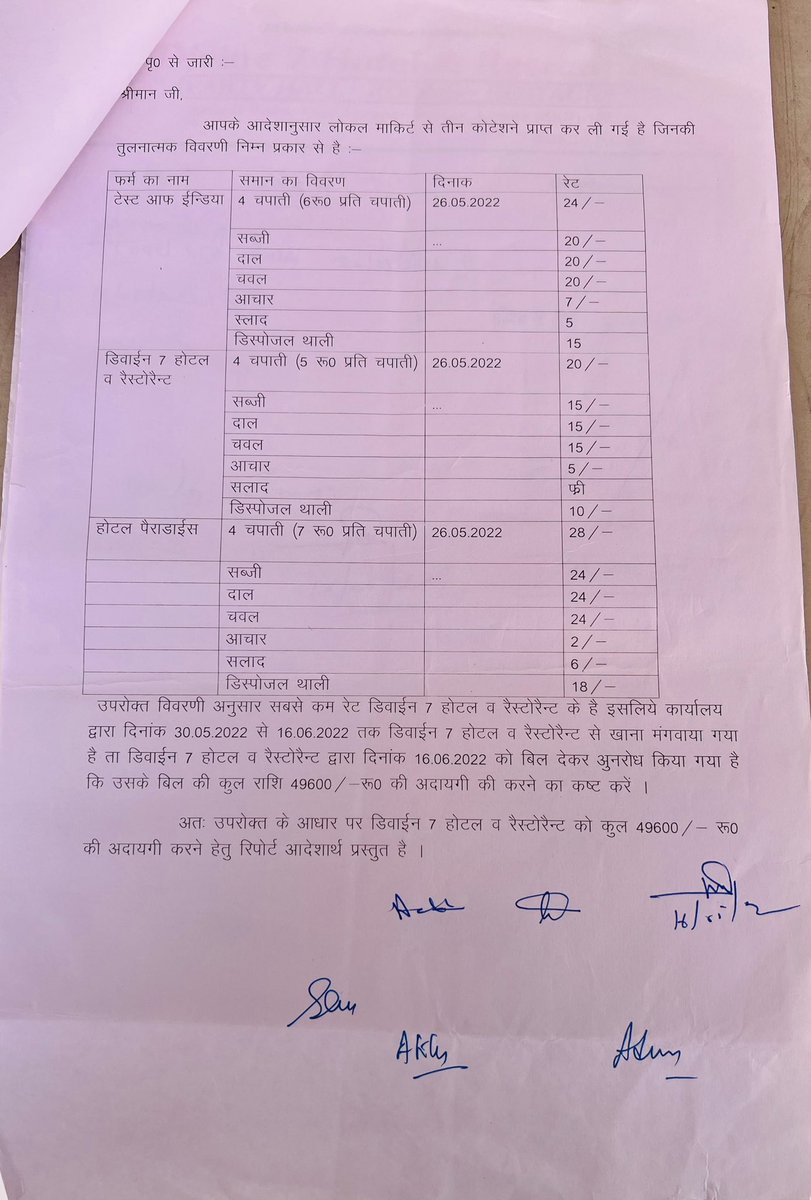 पृ0 से जारी :–
श्रीमान जी,
आपके आदेशानुसार लोकल मार्किट से तीन कोटेशने प्राप्त कर ली गई है जिनकी
तुलनात्मक विवरणी निम्न प्रकार से है :–
फर्म का नाम समान का विवरण दिनाक रेट
टेस्ट आफ ईन्डिया 4 चपाती (6रू0 प्रति चपाती) 26.05.2022 24/–
सब्जी ... 20/–
दाल 20/–
चवल 20/–
आचार 7/–
स्लाद 5
डिस्पोजल थाली 15
डिवाईन 7 होटल 4 चपाती (5 रू0 प्रति चपाती) 26.05.2022 20/–
व रैस्टोरैन्ट
सब्जी ... 15/–
दाल 15/–
चवल 15/–
आचार 5/–
सलाद फ्री
डिस्पोजल थाली 10/–
होटल पैराडाईस 4 चपाती (7 रू0 प्रति चपाती) 26.05.2022 28/–
सब्जी ... 24/–
दाल 24/–
चवल 24/–
आचार 2/–
सलाद 6/–
डिस्पोजल थाली 18/–
उपरोक्त विवरणी अनुसार सबसे कम रेट डिवाईन 7 होटल व रैस्टोरैन्ट के है इसलिये कार्यालय
द्वारा दिनांक 30.05.2022 से 16.06.2022 तक डिवाईन 7 होटल व रैस्टोरैन्ट से खाना मंगवाया गया
है ता डिवाईन 7 होटल व रैस्टोरैन्ट द्वारा दिनांक 16.06.2022 को बिल देकर अुनरोध किया गया है
कि उसके बिल की कुल राशि 49600/–रू0 की अदायगी की करने का कष्ट करें ।
अतः उपरोक्त के आधार पर डिवाईन 7 होटल व रैस्टोरैन्ट को कुल 49600/– रू0
की अदायगी करने हेतु रिपोर्ट आदेशार्थ प्रस्तुत है ।